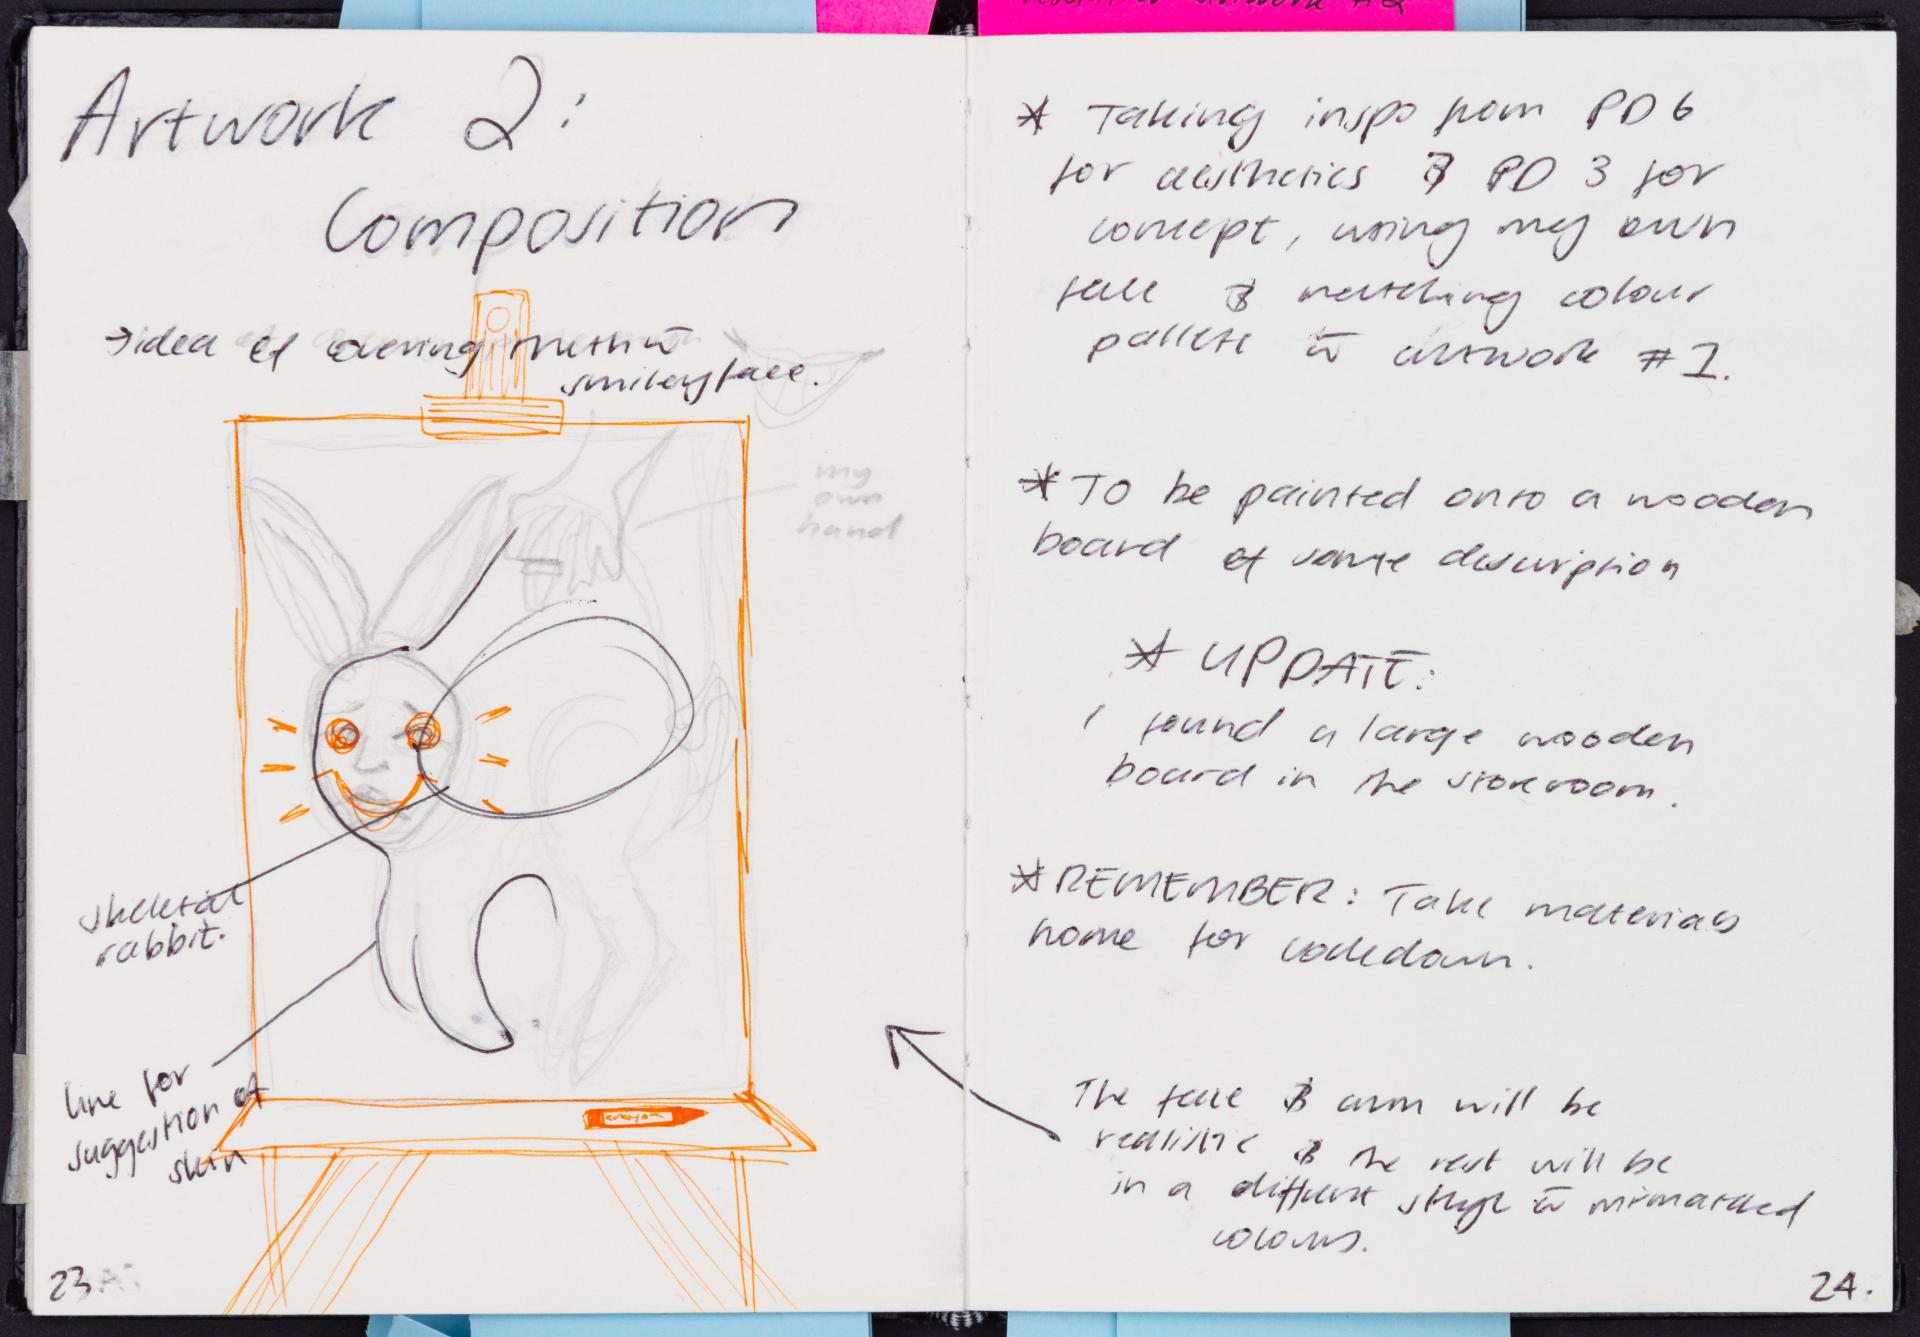 Artwork 2:
Composition
→idea of covering mouth w̄
smiley face.
my
own
hand
skeletal
rabbit.
line for
suggestion of
skin
crayon
23.
artwork #2
* Taking inspo from PD 6
for aesthetics & PD 3 for
concept, using my own
face & matching colour
pallete w̄ artwork #1.
* To be painted onto a wooden
board of some description
* UPDATE:
I found a large wooden
board in the storeroom.
* REMEMBER: Take materials
home for lockdown.
The face & arm will be
realistic & the rest will be
in a different style w̄ mismatched
colours.
24.